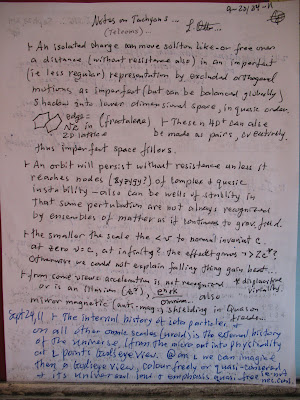 9-23/24-11
Notes on Tachyons...
(Teleoms)...
+ An isolated charge can move soliton like - or free over
a distance (without resistance also) in an imperfect
(ie less regular) representation by excluded orthogonal
motions, as imperfect (but can be balanced globally)
shadow into lower dimensional space, in quasic order.
edge =
NZ in
2D lattice
(fractalene)
+ These n 4D+ can also
be made as pairs, or entirely,
thus imperfect space fillers.
+ An orbit will persist without resistance unless it
reaches nodes (syzygy?) of complex & quasic
instability - also can be wells of stability in
that some pertubation are not always recognized
by ensembles of matter as if continues to grow, freed.
+ the smaller the scale the < v to normal invariant c.
at zero v = c, at infinity? the effect grows
otherwise we could not explain falling thing gain heat...
+ from some views acceleration is not recognized
or is an illusion
* displaced
virtually.
also
mirror magnetic (anti-mag.) shielding in Quason
Sept 24, 11 + The internal history of into particles, &
on all other cosmic scales (neroids), the external history
of the universe, (from the micro out into physicality
on L points bullseye view. @ on L we can imagine
then a bullseye view, colour freely or quasi-conserved
& its universal lead & emphasis quasi-free